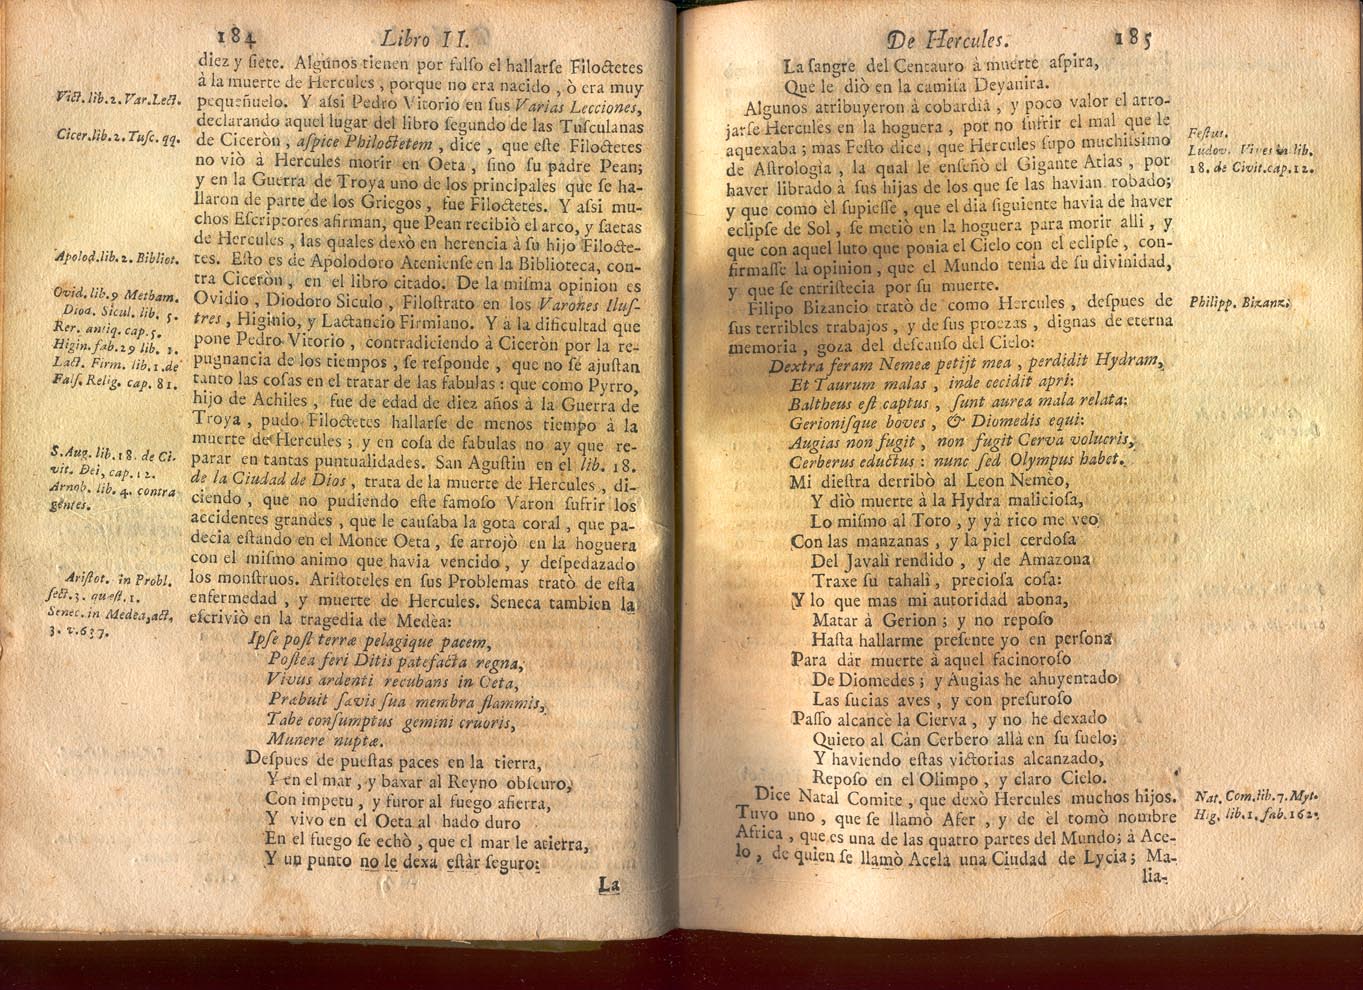 184 Libro II.
diez y ſiete. Algunos tienen por falſo el hallarſe Filoctetes
à la muerte de Hercules, porque no era nacido, ò era muy
Vict. lib. 2. Var. Lect.
pequeñuelo. Y aſsi Pedro Vitorio en ſus Varias Lecciones,
declarando aquel lugar del libro ſegundo de las Tuſculanas
Cicer. lib. 2. Tuſc. qq.
de Ciceròn, aſpice Philoctetem, dice, que eſte Filoctetes
no viò à Hercules morir en Oeta, ſino ſu padre Pean;
y en la Guerra de Troya uno de los principales que ſe ha-
llaron de parte de los Griegos, fue Filoctetes. Y aſsi mu-
chos Eſcriptores afirman, que Pean recibiò el arco, y ſaetas
de Hercules, las quales dexò en herencia à ſu hijo Filocte-
Apolod. lib. 2. Bibliot.
tes. Eſto es de Apolodoro Atenienſe en la Biblioteca, con-
tra Ciceròn, en el libro citado. De la miſma opinion es
Ovid. lib. 9 Metham.
Diod. Sicul. lib. 5.
Rer. antiq. cap. 5.
Higin. fab. 29 lib. 1.
Lact. Firm. lib. 1. de
Falſ. Relig. cap. 81.
Ovidio, Diodoro Siculo, Filoſtrato en los Varones Iluſ-
tres, Higinio, y Lactancio Firmiano. Y à la dificultad que
pone Pedro Vitorio, contradiciendo à Ciceròn por la re-
pugnancia de los tiempos, ſe reſponde, que no ſé ajuſtan
tanto las coſas en el tratar de las fabulas: que como Pyrro,
hijo de Achiles, fue de edad de diez años à la Guerra de
Troya, pudo Filoctetes hallarſe de menos tiempo à la
muerte de Hercules; y en coſa de fabulas no ay que re-
S. Aug. lib. 18. de Ci-
vit. Dei, cap. 12.
Arnob. lib. 4. contra
gentes.
parar en tantas puntualidades. San Aguſtin en el lib. 18.
de la Ciudad de Dios, trata de la muerte de Hercules, di-
ciendo, que no pudiendo eſte famoſo Varon ſufrir los
accidentes grandes, que le cauſaba la gota coral, que pa-
decia eſtando en el Monte Oeta, ſe arrojò en la hoguera
con el miſmo animo que havia vencido, y deſpedazado
Ariſtot. in Probl.
ſect. 3. quæſt. 1.
Senec. in Medea, act.
3. v. 637.
los monſtruos. Ariſtoteles en ſus Problemas tratò de eſta
enfermedad, y muerte de Hercules. Seneca tambien la
eſcriviò en la tragedia de Medèa:
Ipſe poſt terræ pelagique pacem,
Poſtea feri Ditis patefacta regna,
Vivus ardenti recubans in Oeta,
Præbuit ſævis ſua membra flammis,
Tabe conſumptus gemini cruoris,
Munere nuptæ.
Deſpues de pueſtas paces en la tierra,
Y en el mar, y baxar al Reyno obſcuro,
Con impetu, y furor al fuego afierra,
Y vivo en el Oeta al hado duro
En el fuego ſe echò, que el mar le atierra,
Y un punto no le dexa eſtàr ſeguro:
La
De Hercules. 185
La ſangre del Centauro à muerte aſpira,
Que le diò en la camiſa Deyanira.
Algunos atribuyeron à cobardia, y poco valor el arro-
jarſe Hercules en la hoguera, por no ſufrir el mal que le
Feſtus.
Ludov. Vives in lib.
18. de Civit. cap. 12.
aquexaba; mas Feſto dice, que Hercules ſupo muchiſsimo
de Aſtrologia, la qual le enſeñò el Gigante Atlas, por
haver librado à ſus hijas de los que ſe las havian robado;
y que como èl ſupieſſe, que el dia ſiguiente havia de haver
eclipſe de Sol, ſe metiò en la hoguera para morir alli, y
que con aquel luto que ponia el Cielo con el eclipſe, con-
firmaſſe la opinion, que el Mundo tenia de ſu divinidad,
y que ſe entriſtecia por ſu muerte.
Philipp. Bizanz.
Filipo Bizancio tratò de como Hercules, deſpues de
ſus terribles trabajos, y de ſus proezas, dignas de eterna
memoria, goza del deſcanſo del Cielo:
Dextra feram Nemeæ petijt mea, perdidit Hydram,
Et Taurum malas, inde cecidit apri:
Baltheus eſt captus, ſunt aurea mala relata:
Gerioniſque boves, & Diomedis equi:
Augias non fugit, non fugit Cerva volucris,
Cerberus eductus: nunc ſed Olympus habet.
Mi dieſtra derribò al Leon Nemèo,
Y diò muerte à la Hydra malicioſa,
Lo miſmo al Toro, y yà rico me veo
Con las manzanas, y la piel cerdoſa
Del Javalì rendido, y de Amazona
Traxe ſu tahalì, precioſa coſa:
Y lo que mas mi autoridad abona,
Matar à Gerion; y no repoſo
Haſta hallarme preſente yo en perſona
Para dàr muerte à aquel facinoroſo
De Diomedes; y Augias he ahuyentado
Las ſucias aves, y con preſuroſo
Paſſo alcancè la Cierva, y no he dexado
Quieto al Càn Cerbero allà en ſu ſuelo;
Y haviendo eſtas victorias alcanzado,
Repoſo en el Olimpo, y claro Cielo.
Nat. Com. lib. 7. Myt.
Hig. lib. 1. fab. 162.
Dice Natal Comite, que dexò Hercules muchos hijos.
Tuvo uno, que ſe llamò Afer, y de èl tomò nombre
Africa, que es una de las quatro partes del Mundo; à Ace-
lo, de quien ſe llamò Acela una Ciudad de Lycia; Ma-
lia-